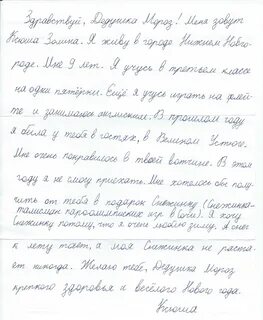 Здравствуй, Дедушка Мороз! Меня зовут
Ксюша Зомина. Я живу в городе Нижнем Новго-
роде. Мне 9 лет. Я учусь в третьем классе
на одни пятёрки. Ещё я учусь играть на флей-
те и занимаюсь английским. В прошлом году
я была у тебя в гостях, в Великом Устюге.
Мне очень понравилось в твоей вотчине. В этом
году я не смогу приехать. Мне хотелось бы полу-
чить от тебя в подарок Снежинку (Снежинка-
талисман параолимпийских игр в Сочи). Я хочу
Снежинку потому, что я очень люблю зиму. А снег
к лету тает, а моя Снежинка не раста-
ет никогда. Желаю тебе, Дедушка Мороз
крепкого здоровья и весёлого Нового года.
Ксюша